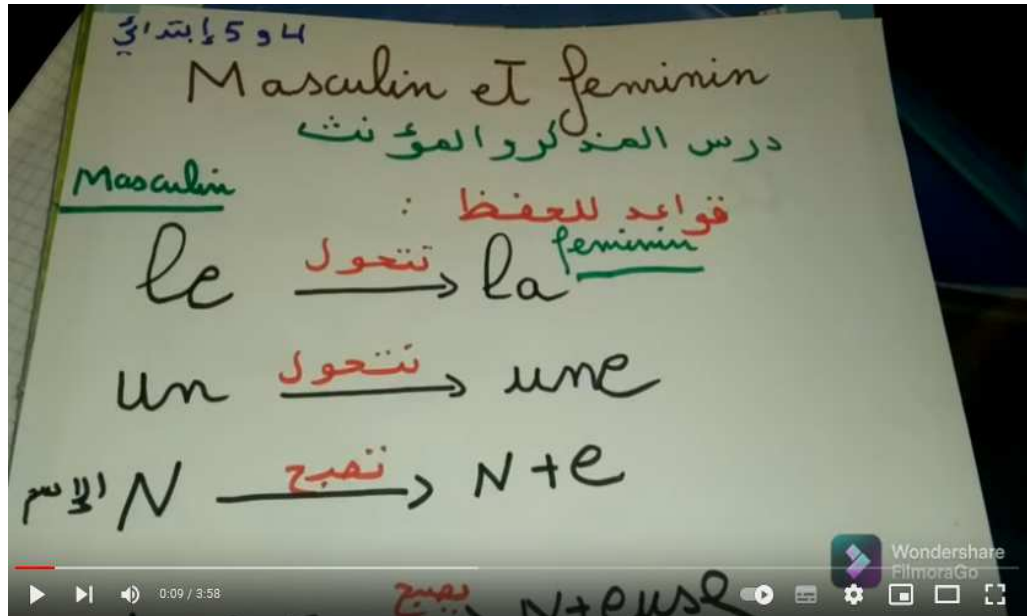 4 و 5 إبتدائي
Masculin et feminin
درس المذكر و المؤنث
Masculin
قواعد للحفظ :
feminin
le تتحول la
un تتحول une
الإسم N تصبح N+e
يصبح N+euse
Wondershare
FilmoraGo
0:09 / 3:58